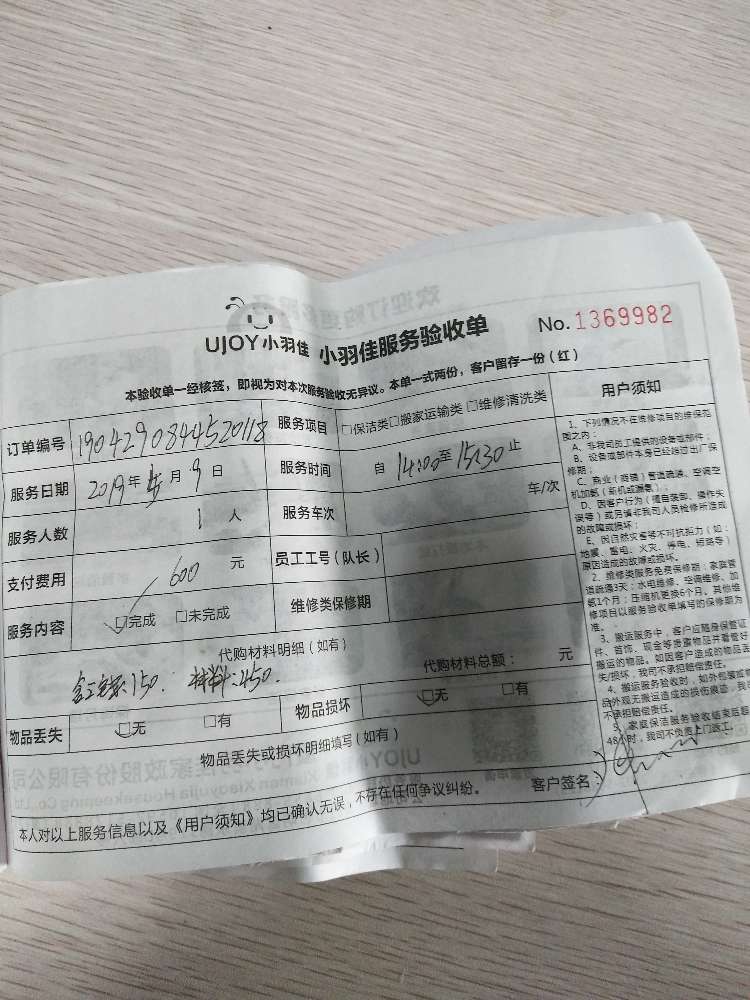 UJOY小羽佳 小羽佳服务验收单 No.1369982
本验收单一经核签，即视为对本次服务验收无异议。本单一式两份，客户留存一份（红）
订单编号 1904290844520118 服务项目 □保洁类□搬家运输类 □维修清洗类
服务日期 2019年5月9日 服务时间 自 14:00至15:30止
服务人数 1 人 服务车次 车/次
支付费用 600 元 员工工号（队长）
服务内容 □完成 □未完成 维修类保修期
代购材料明细（如有）
150. 材料:450. 代购材料总额： 元
物品丢失 □无 □有 物品损坏 □无 □有
物品丢失或损坏明细填写（如有）
客户签名：
本人对以上服务信息以及《用户须知》均已确认无误，不存在任何争议纠纷。
用户须知
1、下列情况不在维修项目的维保范
围之内：
A、非我司员工提供的设备或部件；
B、设备或部件本身已经超过出厂保
修期；
C、商业（商铺）管道疏通、空调空
机加氨（新机或漏氨）；
D、因客户行为（擅自装卸、操作失
误等）或另请非我司人员检修所造成
的故障或损坏；
E、因自然灾害等不可抗拒力（如：
地震、雷电、火灾、停电、短路等）
原因造成的故障或损坏。
2、维修类服务免费保修期：家庭管
道疏通3天；水电维修、空调维修、加
氨1个月；压缩机更换6个月。其他维
修项目以服务验收单填写的保修期为
准。
3、搬运服务中，客户应随身保管证
件、首饰、现金等贵重物品并看管好
搬运的物品。如因客户造成的物品丢
失/损坏，我司不承担赔偿责任。
4、搬运服务验收时，如外包装或
品外观无搬运造成的损伤痕迹，我
不承担赔偿责任。
5、家庭保洁服务验收结束后超
48小时，我司不负责上门返工。